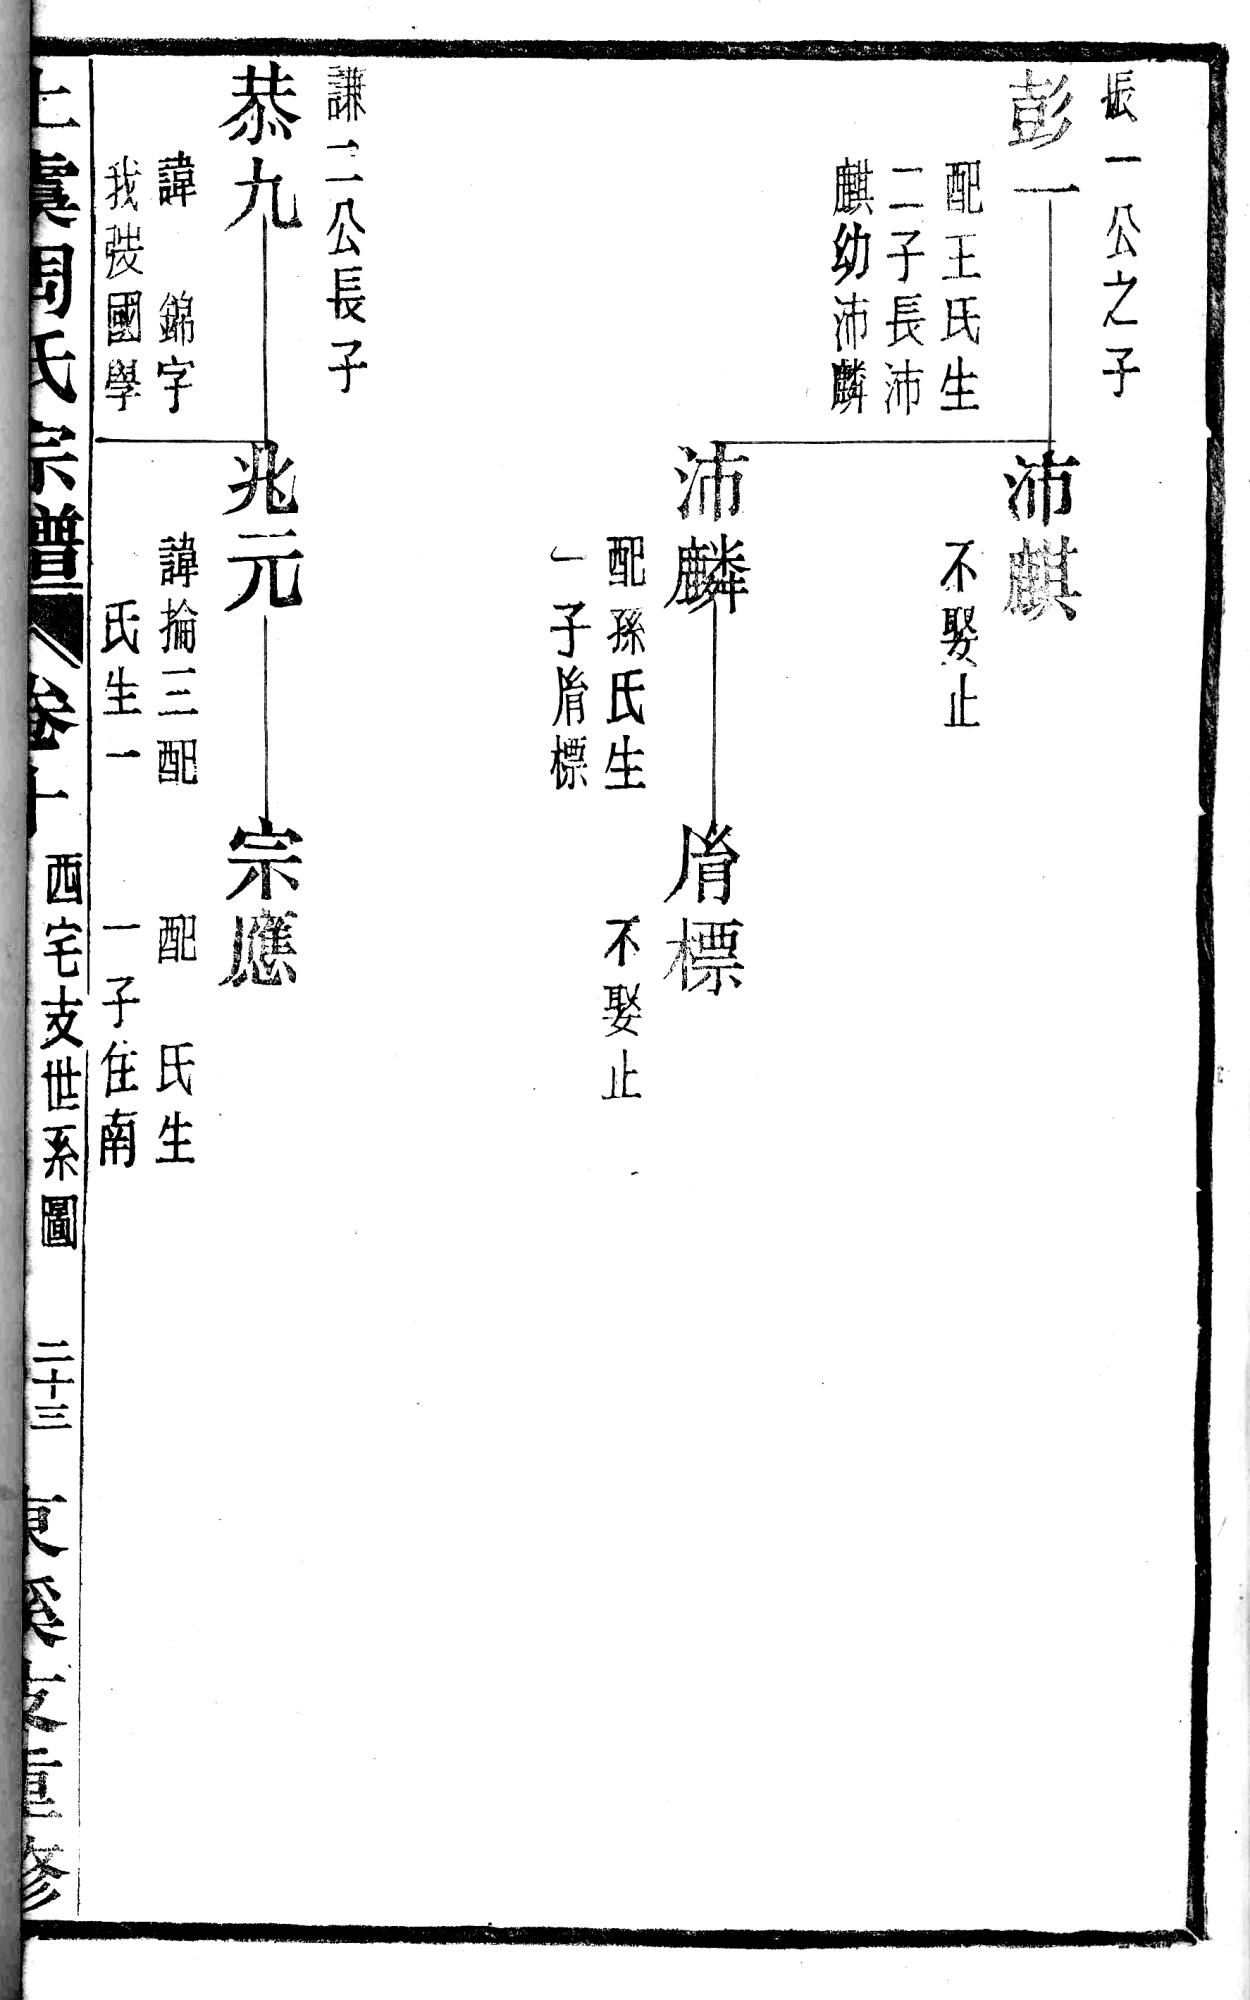 振一公之子
彭一
配王氏生
二子長沛
麒幼沛麟
沛麒
不娶止
沛麟
配孫氏生
一子脀標
脀標
不娶止
謙二公長子
恭九
諱 錦字
我裝國學
兆元
諱掄三配
氏生一
宗應
配 氏生
一子住南
上虞周氏宗譜 卷十 西宅支世系圖 二十三 東溪支重修